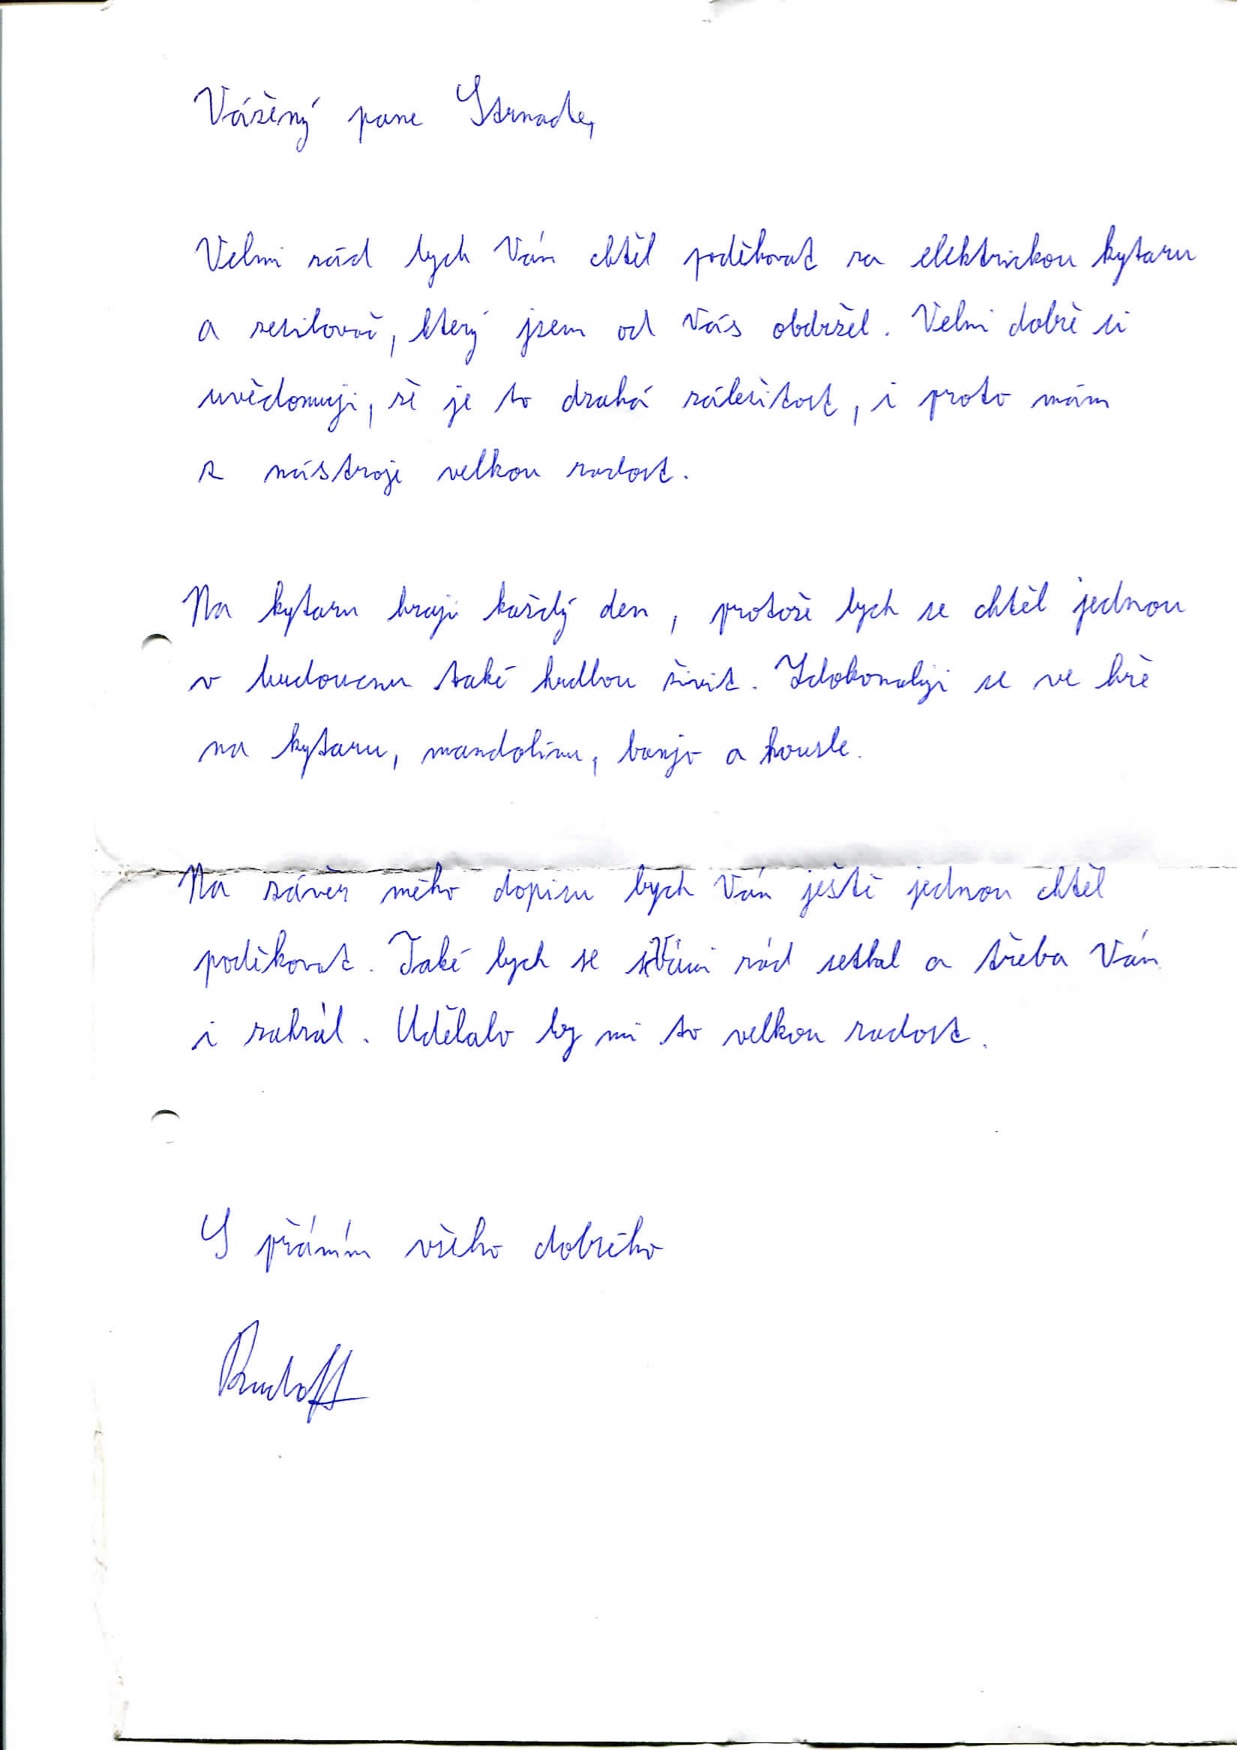 Vážený pane Strnade,
Velmi rád bych Vám chtěl poděkovat za elektrickou kytaru
a zesilovač, který jsem od Vás obdržel. Velmi dobře si
uvědomuji, že je to drahá záležitost, i proto mám
z nástroje velkou radost.
Na kytaru hraji každý den, protože bych se chtěl jednou
v budoucnu také hudbou živit. Zdokonaluji se ve hře
na kytaru, mandolínu, banjo a housle.
Na závěr mého dopisu bych Vám ještě jednou chtěl
poděkovat. Také bych se s Vámi rád setkal a třeba Vám
i zahrál. Udělalo by mi to velkou radost.
S přáním všeho dobrého
Rudolf